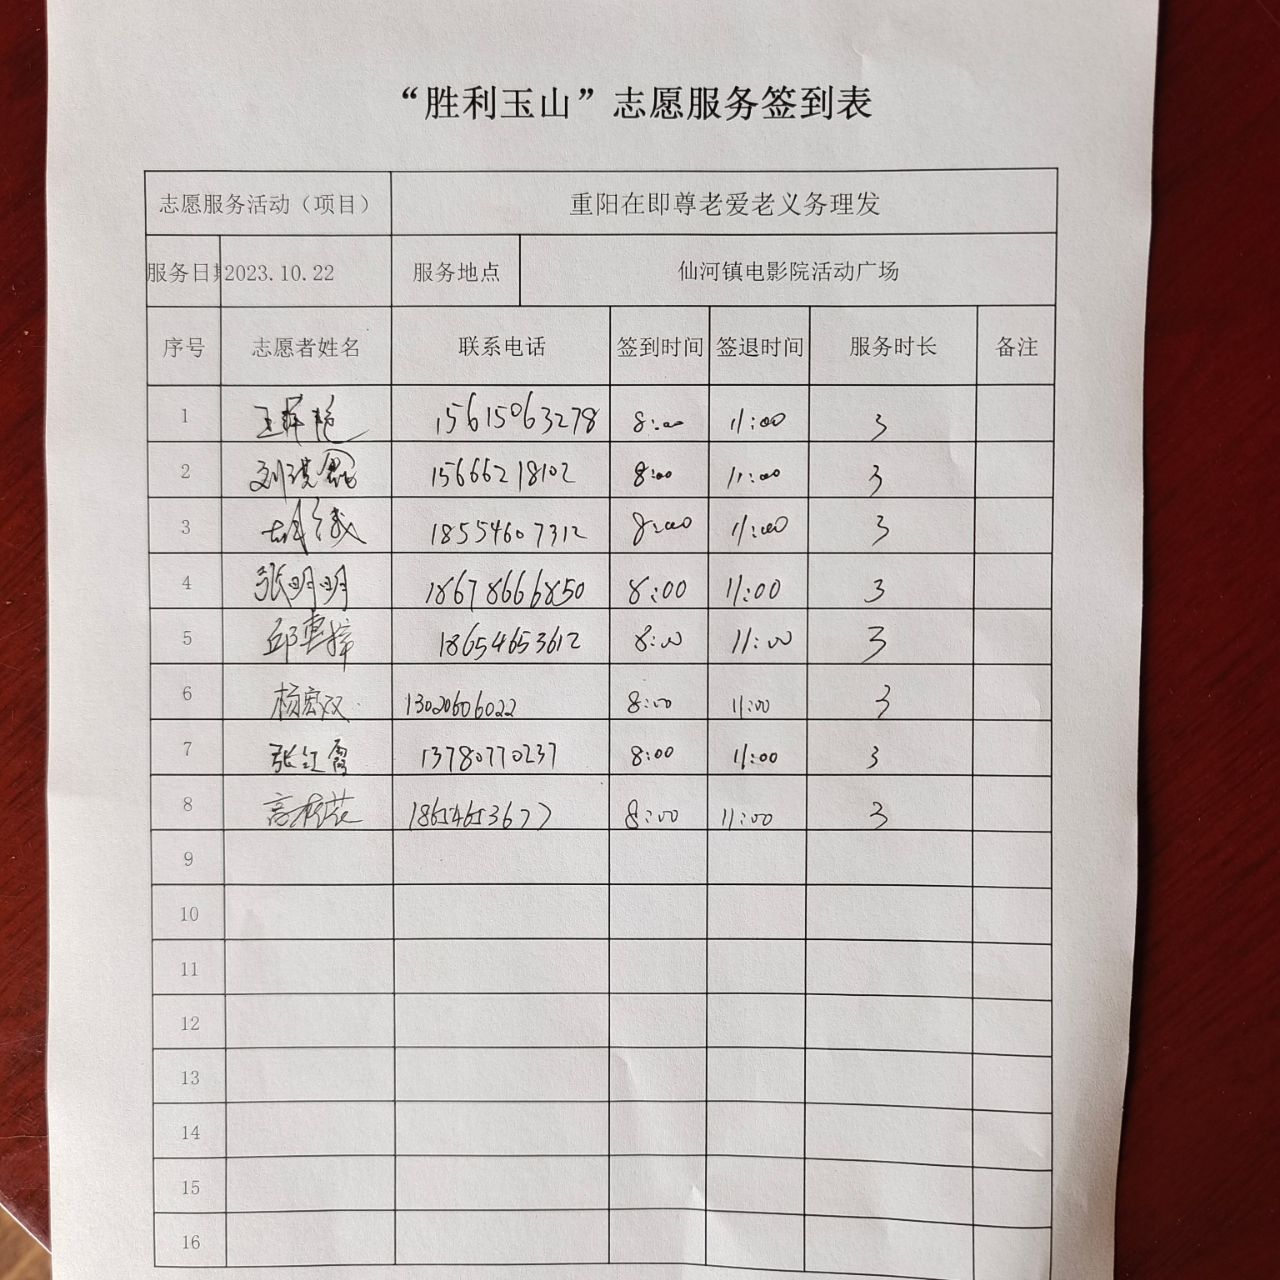 “胜利玉山”志愿服务签到表
志愿服务活动（项目） 重阳在即尊老爱老义务理发
服务日期 2023.10.22 服务地点 仙河镇电影院活动广场
序号 志愿者姓名 联系电话 签到时间 签退时间 服务时长 备注
1 15615063278 8:00 11:00 3
2 15666218102 8:00 11:00 3
3 18554607312 8:00 11:00 3
4 张明明 18678666850 8:00 11:00 3
5 18654653612 8:00 11:00 3
6 杨宏双 13020606022 8:00 11:00 3
7 张红霞 13780770237 8:00 11:00 3
8 18654653677 8:00 11:00 3
9
10
11
12
13
14
15
16